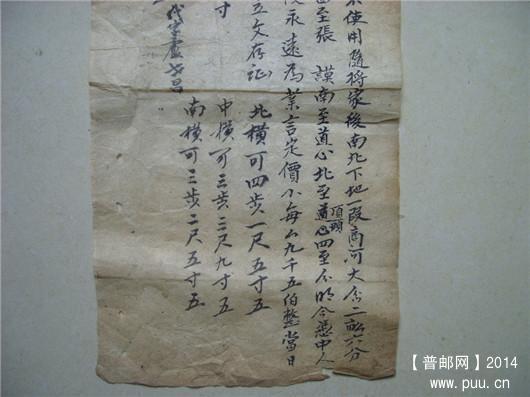 使用隨將家後南北下地一段高河大仝二畝六分
至張謨南至道心北至道心四至分明今憑中人
頂頭
永遠為業言定價小每畝九千五伯整當日
立文存証 北橫可四步一尺五寸五
寸 中橫可三步二尺九寸五
南橫可三步二尺五寸五
【普邮网】2014
www.puu.cn